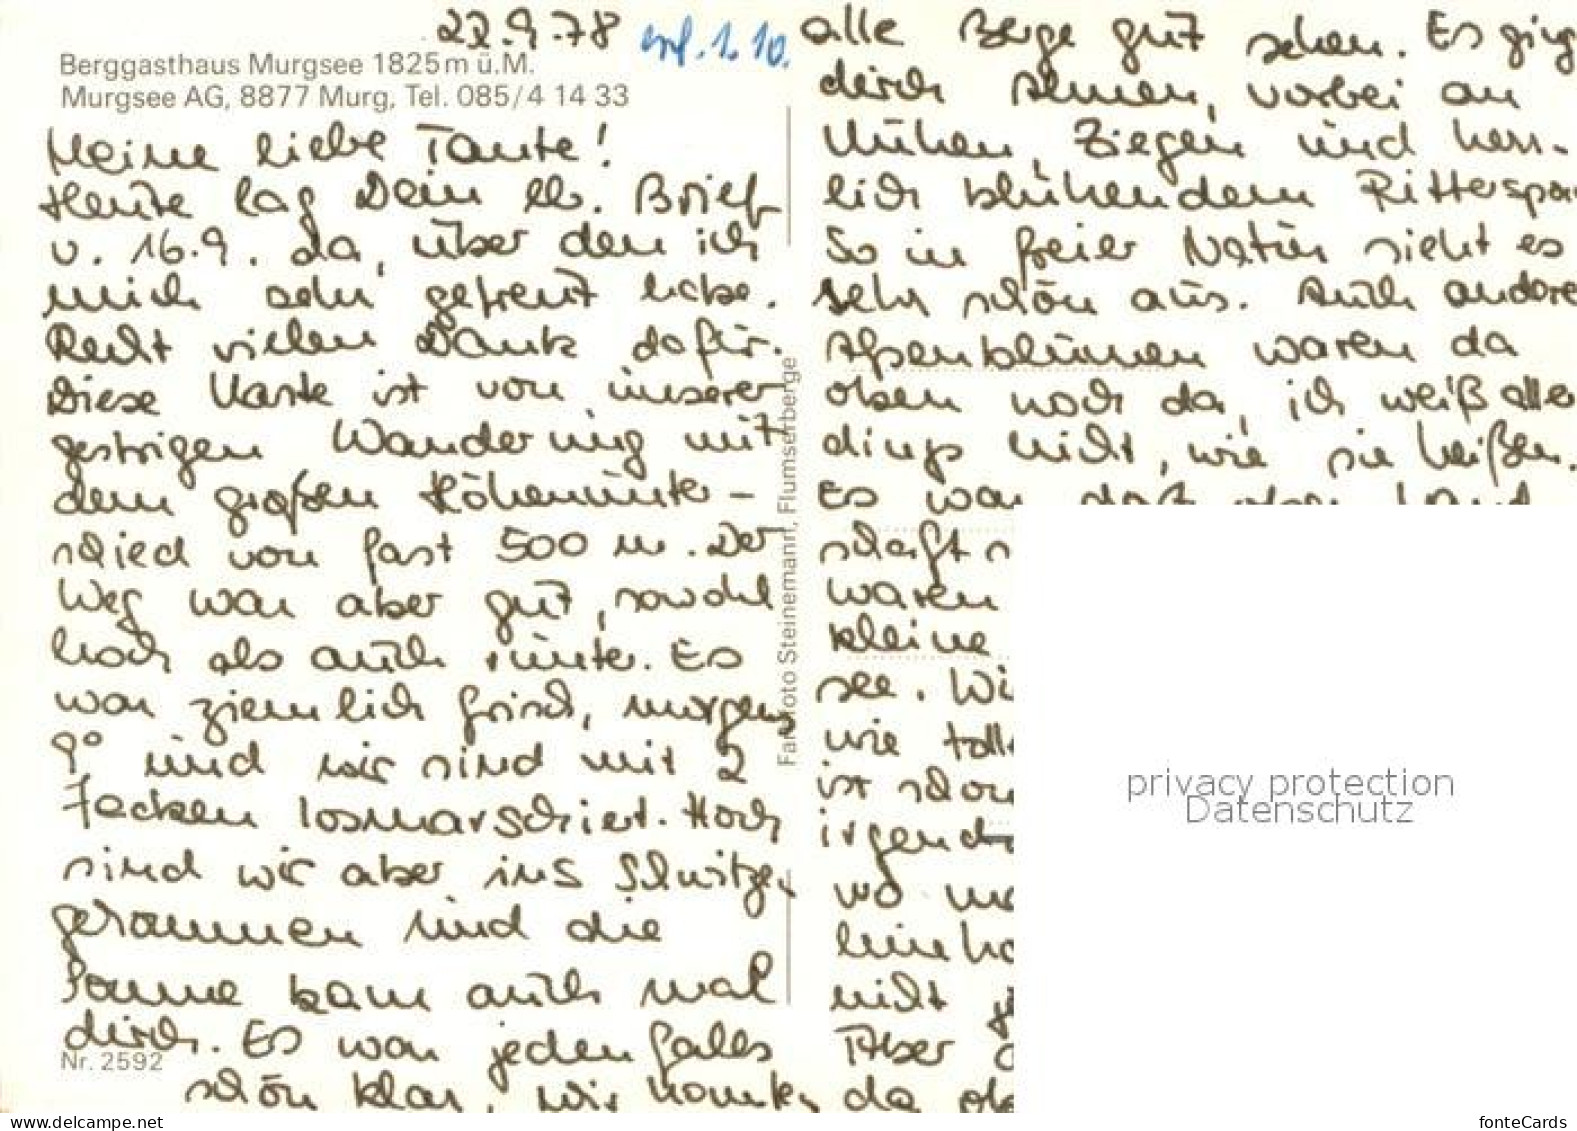 22.9.78 erh. 1.10.
Berggasthaus Murgsee 1825 m ü.M.
Murgsee AG, 8877 Murg, Tel. 085/4 14 33
Meine liebe Tante!
Heute lag Dein lb. Brief
v. 16.9. da, über den ich
mich sehr gefreut habe.
Recht vielen Dank dafür.
Diese Karte ist von unserer
gestrigen Wanderung mit
dem großen Höhenunter-
schied von fast 500 m. Der
Weg war aber gut, sowohl
hoch als auch runter. Es
war ziemlich frisch, morgens
9° und wir sind mit 2
Jacken losmarschiert. Hoch
sind wir aber ins Schwitzen
gekommen und die
Sonne kam auch mal
durch. Es war jedenfalls
schön klar, wir konnten
Nr. 2592
Farbfoto Steinemann, Flumserberge
alle Berge gut sehen. Es ging
durch Almen, vorbei an
Kühen, Ziegen und herr-
lich blühendem Rittersporn
So in freier Natur sieht es
sehr schön aus. Auch andere
Alpenblumen waren da
oben noch da, ich weiß aller
dings nicht, wie sie heißen.
Es war dort oben
schaft
waren
kleine
see. Wi
wie toll
ist schon
irgend
wo
hinha
nicht
Aber
da ob
privacy protection
Datenschutz
www.ansichtskarten-center.de
fonteCards